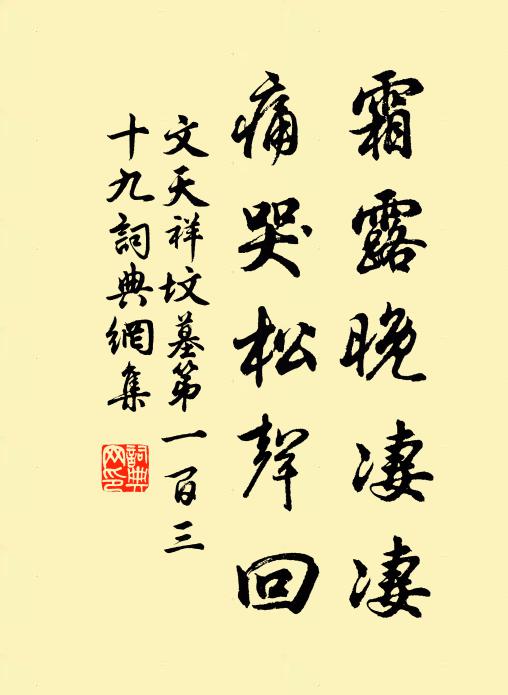 霜露晚淒淒
痛哭松聲回
文天祥坟墓第一百三
十九詞典網集
詞典
网印